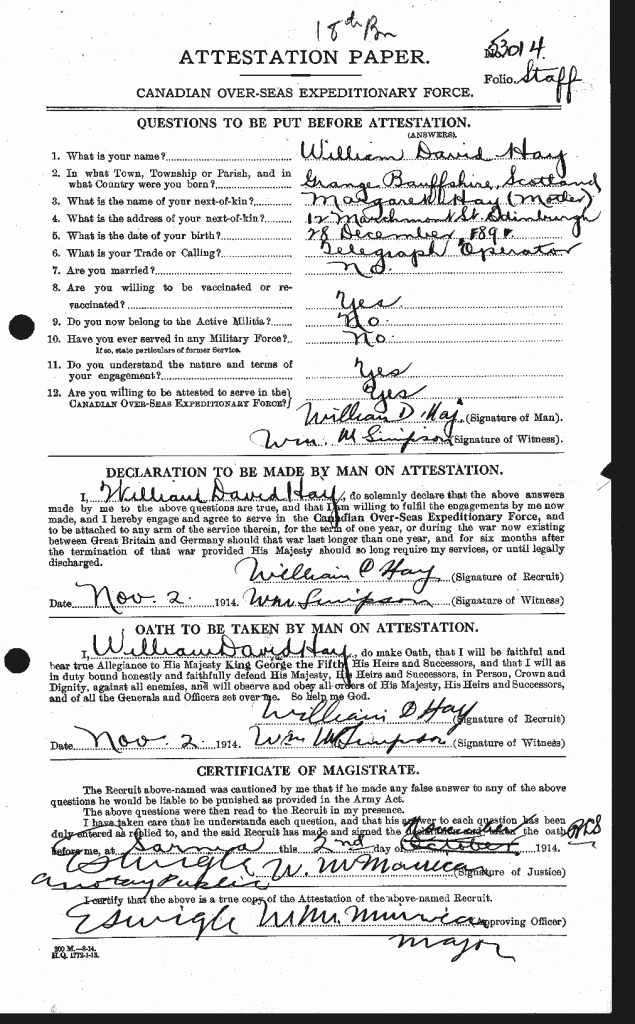 18th Bn
ATTESTATION PAPER.
No. 53014
Folio. Staff
CANADIAN OVER-SEAS EXPEDITIONARY FORCE.
QUESTIONS TO BE PUT BEFORE ATTESTATION.
(ANSWERS).
1. What is your name? William David Hay
2. In what Town, Township or Parish, and in
what Country were you born? Grange Banffshire, Scotland
3. What is the name of your next-of-kin? Margaret Hay (Mother)
4. What is the address of your next-of-kin? 12 Marchmont St. Edinburgh
5. What is the date of your birth? 28 December
6. What is your Trade or Calling? Telegraph Operator
7. Are you married? No.
8. Are you willing to be vaccinated or re-
vaccinated? Yes
9. Do you now belong to the Active Militia? No.
10. Have you ever served in any Military Force? No.
If so, state particulars of former Service.
11. Do you understand the nature and terms of
your engagement? Yes
12. Are you willing to be attested to serve in the
CANADIAN OVER-SEAS EXPEDITIONARY FORCE? Yes
William D. Hay. (Signature of Man).
Wm. M Simpson (Signature of Witness).
DECLARATION TO BE MADE BY MAN ON ATTESTATION.
I, William David Hay, do solemnly declare that the above answers
made by me to the above questions are true, and that I am willing to fulfil the engagements by me now
made, and I hereby engage and agree to serve in the Canadian Over-Seas Expeditionary Force, and
to be attached to any arm of the service therein, for the term of one year, or during the war now existing
between Great Britain and Germany should that war last longer than one year, and for six months after
the termination of that war provided His Majesty should so long require my services, or until legally
discharged.
William D Hay (Signature of Recruit)
Date Nov. 2. 1914. Wm Simpson (Signature of Witness)
OATH TO BE TAKEN BY MAN ON ATTESTATION.
I, William David Hay, do make Oath, that I will be faithful and
bear true Allegiance to His Majesty King George the Fifth, His Heirs and Successors, and that I will as
in duty bound honestly and faithfully defend His Majesty, His Heirs and Successors, in Person, Crown and
Dignity, against all enemies, and will observe and obey all orders of His Majesty, His Heirs and Successors,
and of all the Generals and Officers set over me. So help me God.
William D Hay (Signature of Recruit)
Date Nov. 2 1914. Wm M Simpson (Signature of Witness)
CERTIFICATE OF MAGISTRATE.
The Recruit above-named was cautioned by me that if he made any false answer to any of the above
questions he would be liable to be punished as provided in the Army Act.
The above questions were then read to the Recruit in my presence.
I have taken care that he understands each question, and that his answer to each question has been
duly entered as replied to, and the said Recruit has made and signed the declaration and taken the oath
before me, at Sarnia this 2nd day of October 1914.
(Signature of Justice)
a notary Public
I certify that the above is a true copy of the Attestation of the above-named Recruit.
(Approving Officer)
Major
200 M.—8-14.
H.Q. 1772-1-13.